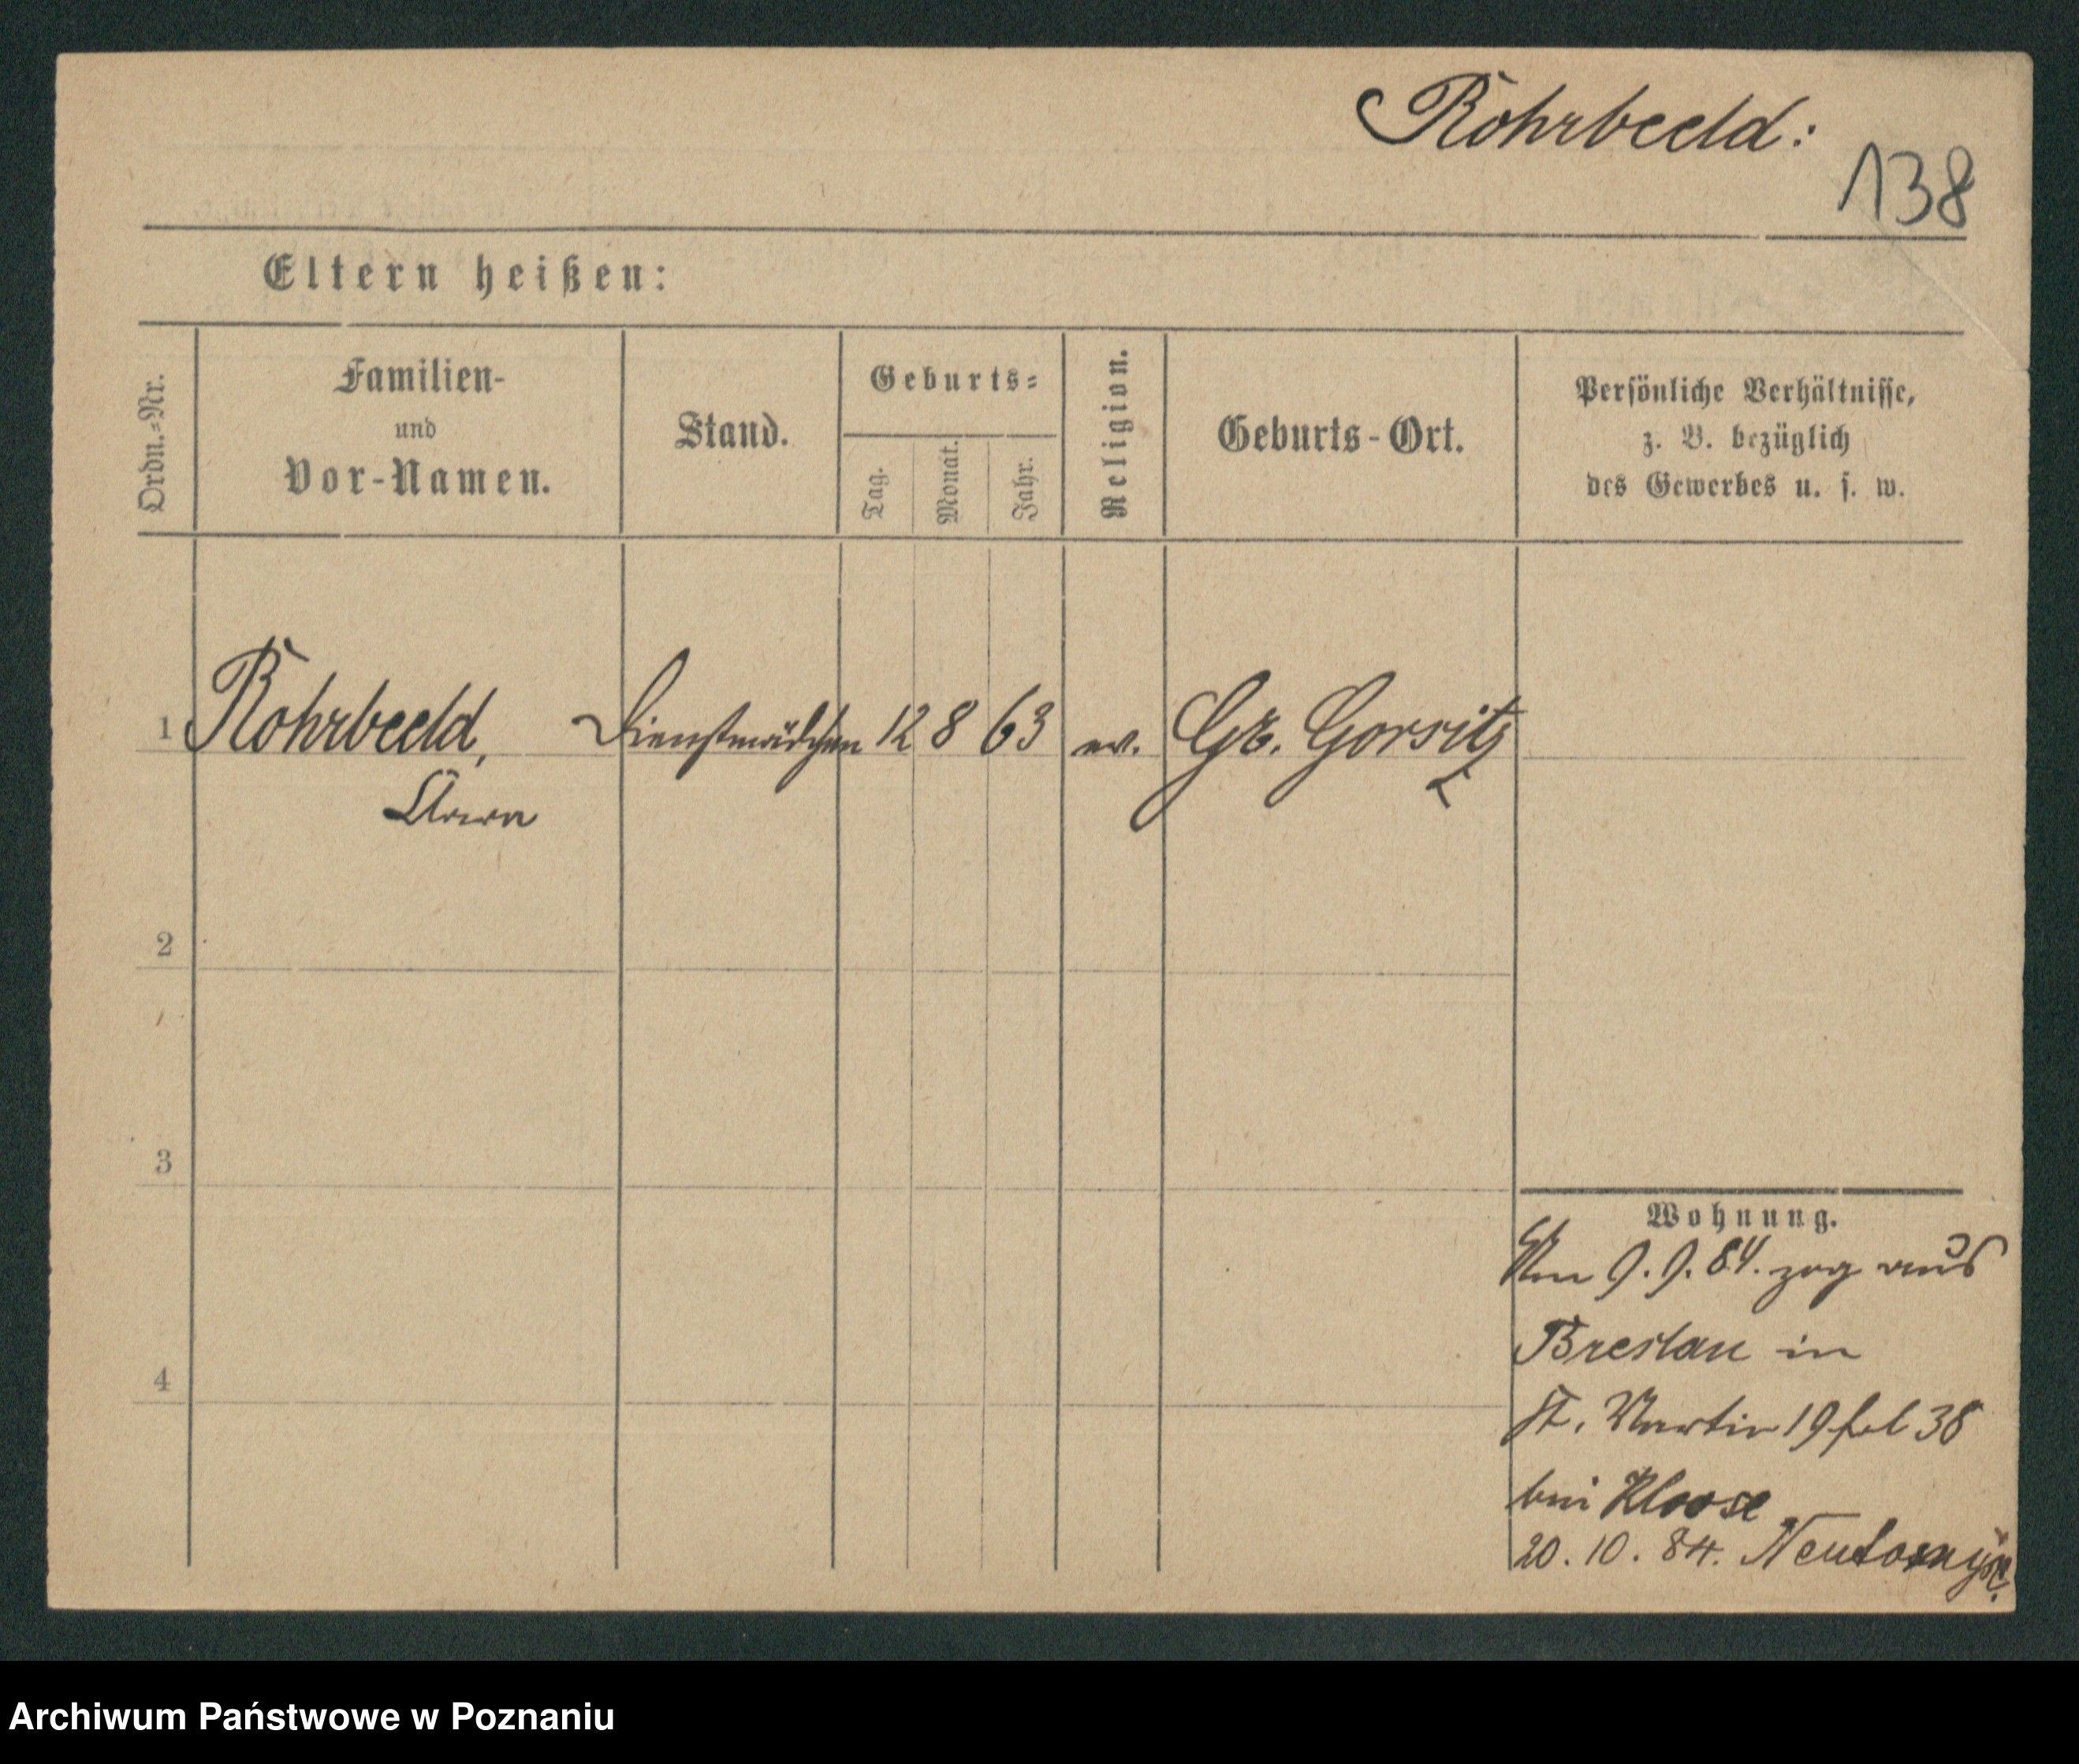 Rohrbeeld:
138
Eltern heißen:
Ordn.-Nr.
Familien-
und
Vor-Namen.
Stand.
Geburts-
Tag.
Monat.
Jahr.
Religion.
Geburts-Ort.
Persönliche Verhältnisse,
z. B. bezüglich
des Gewerbes u. s. w.
1 Rohrbeeld, Dienstmädchen 12 8 63 ev. Gr. Gorsitz
Anna
2
3
4
Wohnung.
Am 9. 9. 84. zog aus
Breslau in
St. Martin 19 38
bei Kloose
20. 10. 84. Neutomysl.
Archiwum Państwowe w Poznaniu